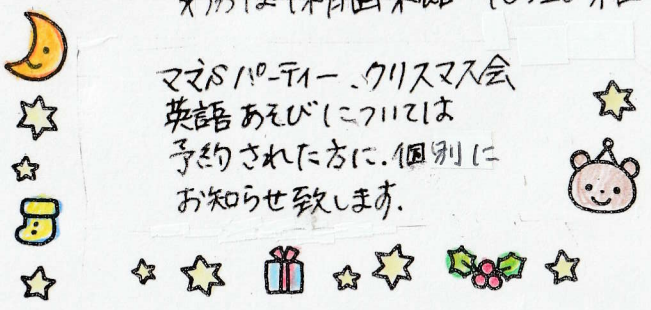 ママ'Sパーティー、クリスマス会
英語あそびについては
予約された方に、個別に
お知らせ致します。